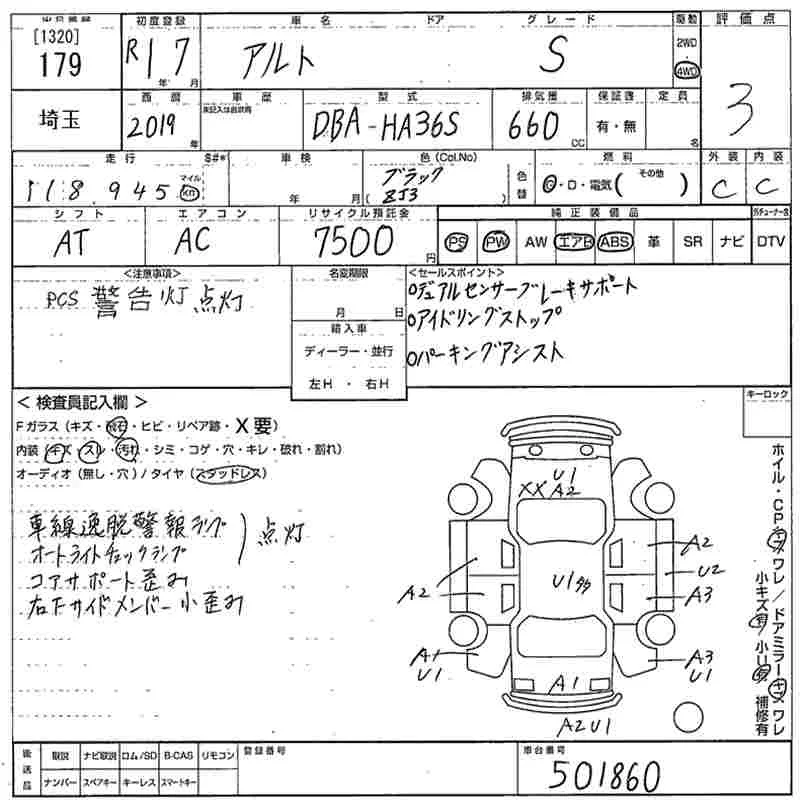 出品番号 初度登録 車名 ドア グレード 駆動 評価点
[1320]
179 R1 7 年 月 アルト S 2WD 4WD 3
西暦 車歴 型式 排気量 保証書 定員
未記入は自家用
埼玉 2019 年 DBA-HA36S 660 CC 有・無 名
走行 $#* 車検 色 (Col.No) 燃料 外装 内装
118,945 マイル km 年 月 ブラック ( ZJ3 ) 色替 G・D・電気( その他 ) C C
シフト エアコン リサイクル預託金 純正装備品 ガチューナー名
AT AC 7500 円 PS PW AW エアB ABS 革 SR ナビ DTV
<注意事項> 名変期限 <セールスポイント>
PCS 警告灯点灯 月 日 oデュアルセンサーブレーキサポート
輸入車 oアイドリングストップ
ディーラー・並行 oパーキングアシスト
左H ・ 右H
<検査員記入欄> キーロック
Fガラス (キズ・飛石・ヒビ・リペア跡・X要)
内装 (キズ・スレ・汚れ・シミ・コゲ・穴・キレ・破れ・割れ)
オーディオ (無し・穴) / タイヤ (スタッドレス)
車線逸脱警報ランプ
オートライトチェックランプ ) 点灯
コアサポート歪み
右下サイドメンバー小歪み
U1
XX A2
A2 A2
U2
U1多々
A2 A3
A1 A3
U1 U1
A1
A2 U1
ホイル・CPキズワレ/ドアミラーキズワレ
小キズ有 小U有 補修有
後送品 取説 ナビ取説 ロム/SD B-CAS リモコン 登録番号 車台番号
ナンバー スペアキー キーレス スマートキー 501860